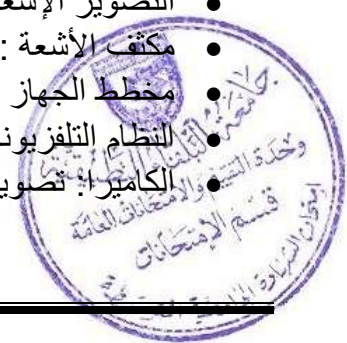 • التصوير الإشعا
• مكثف الأشعة :
• مخطط الجهاز
• النظام التلفزيون
• الكاميرا: تصوير
جامعة البلقاء التطبيقية
وحدة التقييم والامتحانات العامة
قسم الإمتحانات